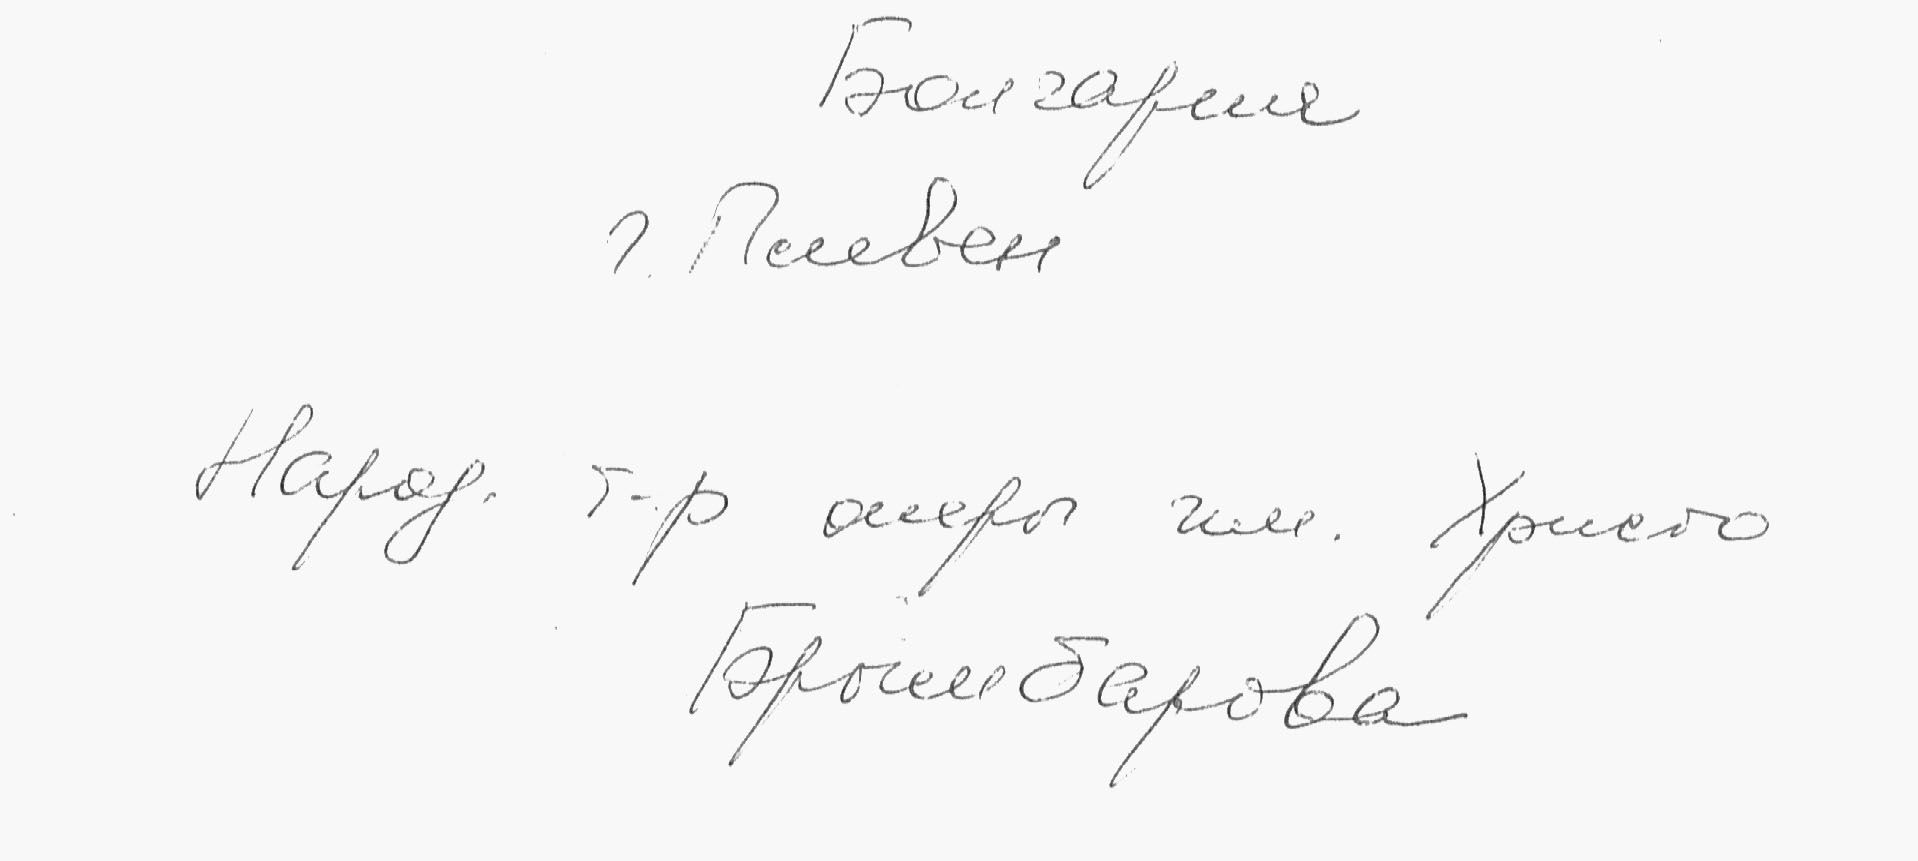 Болгария
г. Плевен
Народ. т-р оперы им. Христо
Брымбарова